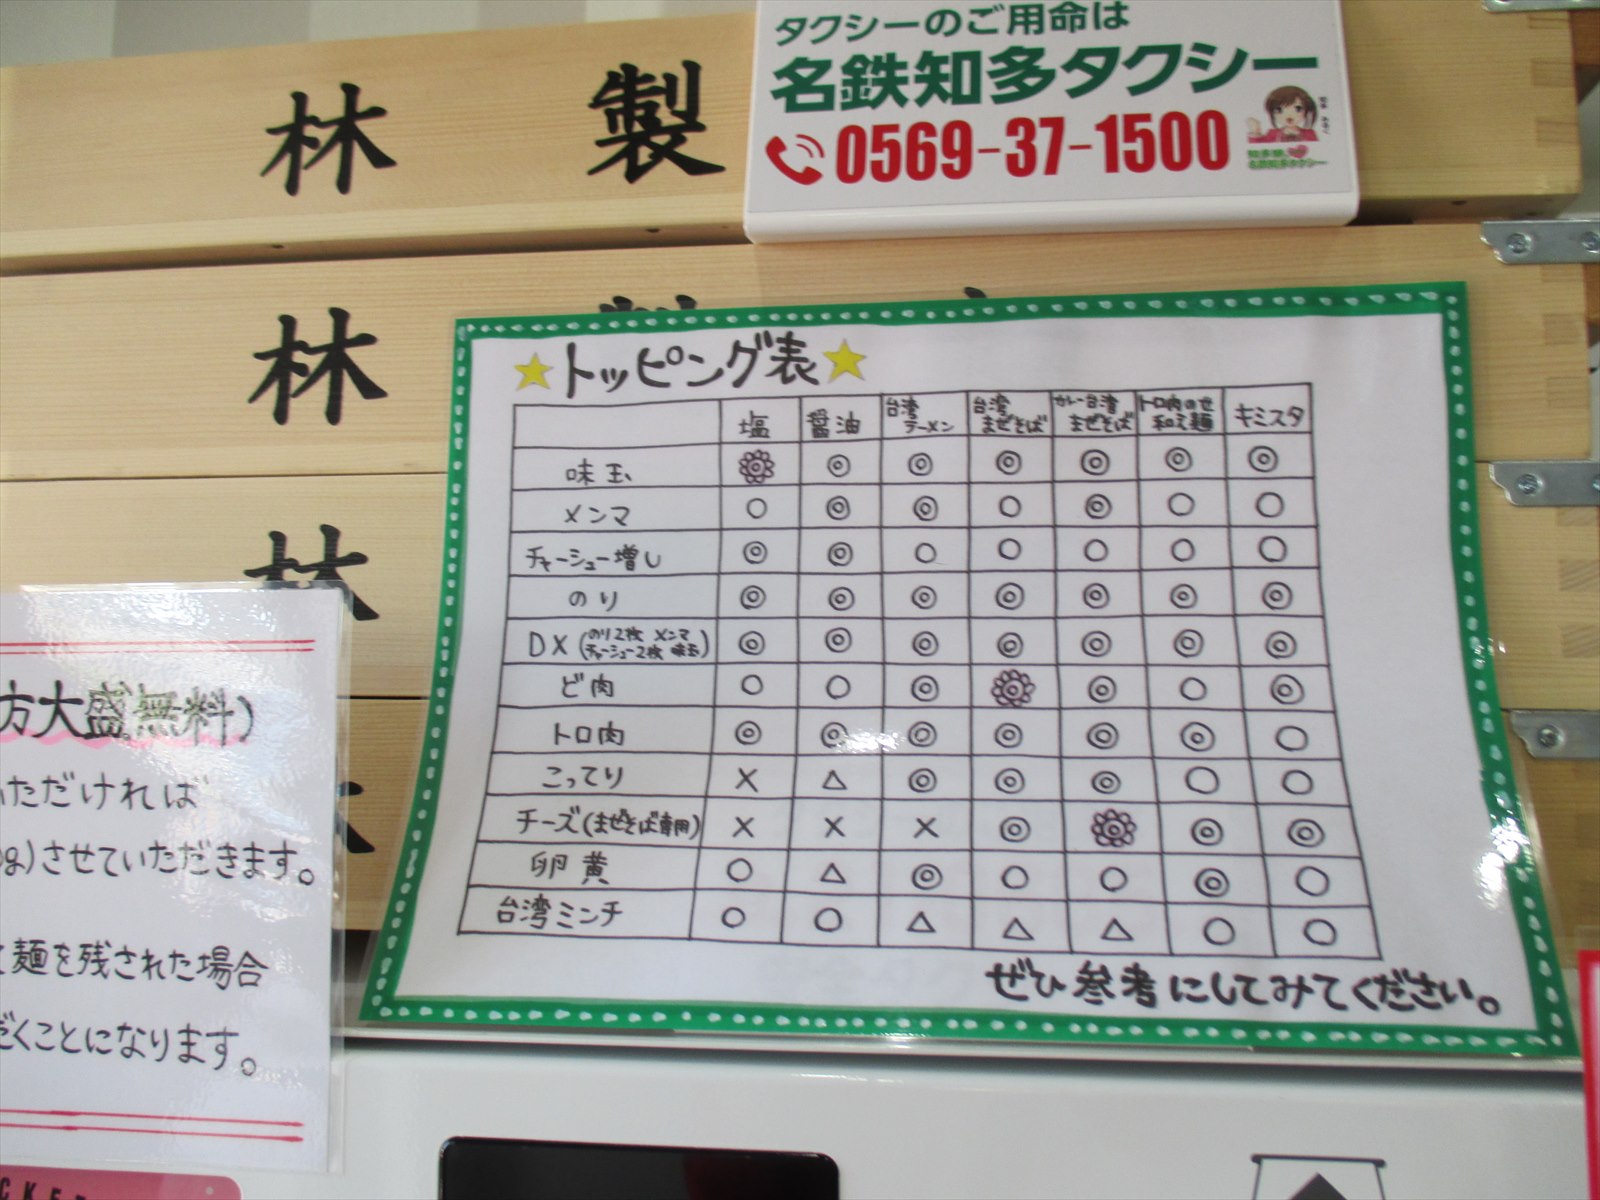 タクシーのご用命は
名鉄知多タクシー
0569-37-1500
名鉄知多タクシー
林 製
林
林
★トッピング表★
塩 醤油 台湾ラーメン 台湾まぜそば カレー台湾まぜそば トロ肉のせ和え麺 キミスタ
味玉 ◎ ◎ ◎ ◎ ◎ ◎
メンマ ○ ◎ ◎ ○ ◎ ○ ○
チャーシュー増し ◎ ◎ ○ ○ ○ ○ ○
のり ◎ ◎ ◎ ◎ ◎ ◎ ◎
DX(のり2枚 メンマ チャーシュー2枚 味玉) ◎ ◎ ◎ ◎ ◎ ◎ ◎
ど肉 ○ ○ ◎ ◎ ○ ◎
トロ肉 ◎ ◎ ◎ ◎ ◎ ◎ ○
こってり × △ ◎ ◎ ◎ ○ ○
チーズ(まぜそば専用) × × × ◎ ◎ ◎
卵黄 ○ △ ◎ ○ ○ ◎ ○
台湾ミンチ ○ ○ △ △ △ ○ ○
ぜひ参考にしてみてください。
方大盛無料)
いただければ
0g)させていただきます。
て麺を残された場合
だくことになります。